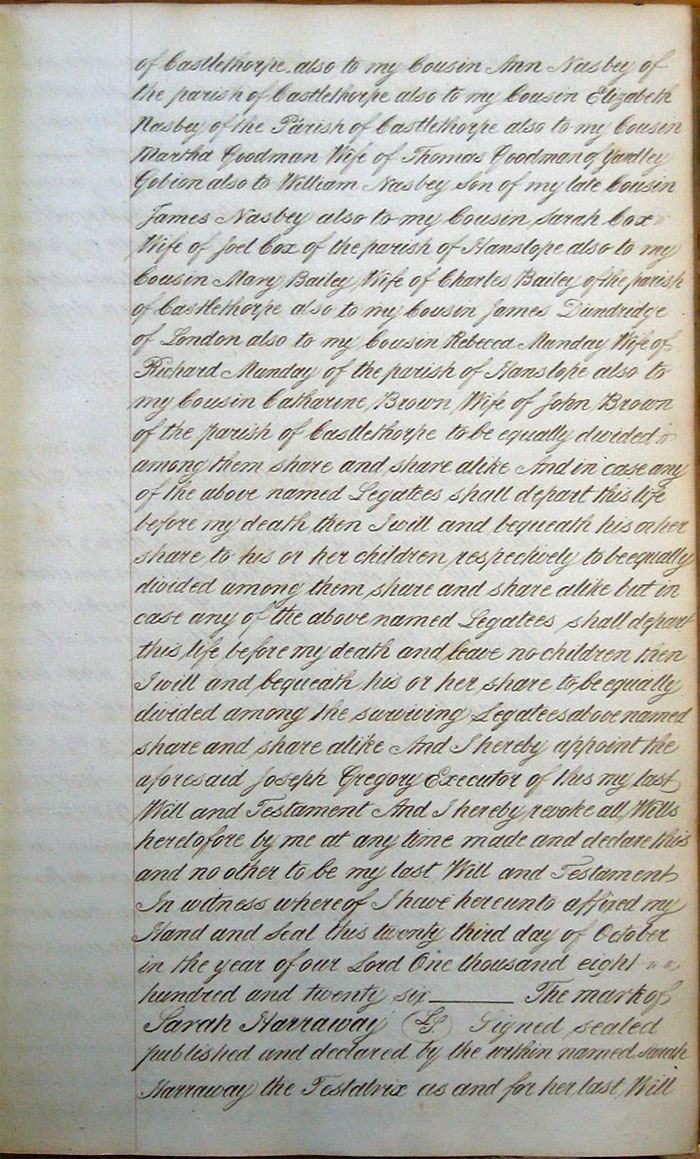 of Castlethorpe also to my Cousin Ann Nasbey of
the parish of Castlethorpe also to my Cousin Elizabeth
Nasbey of the Parish of Castlethorpe also to my Cousin
Martha Goodman Wife of Thomas Goodman of Yardley
Gobion also to William Nasbey Son of my late Cousin
James Nasbey also to my Cousin Sarah Cox
Wife of Joel Cox of the parish of Hanslope also to my
Cousin Mary Bailey Wife of Charles Bailey of the parish
of Castlethorpe also to my Cousin James Dundridge
of London also to my Cousin Rebecca Munday Wife of
Richard Munday of the parish of Hanslope also to
my Cousin Catharine Brown Wife of John Brown
of the parish of Castlethorpe to be equally divided
among them share and share alike And in case any
of the above named Legatees shall depart this life
before my death then I will and bequeath his or her
share to his or her children respectively to be equally
divided among them share and share alike but in
case any of the above named Legatees shall depart
this life before my death and leave no children then
I will and bequeath his or her share to be equally
divided among the surviving Legatees above named
share and share alike And I hereby appoint the
aforesaid Joseph Gregory Executor of this my last
Will and Testament And I hereby revoke all Wills
heretofore by me at any time made and declare this
and no other to be my last Will and Testament
In witness whereof I have hereunto affixed my
Hand and Seal this twenty third day of October
in the year of our Lord One thousand eight
hundred and twenty six ——— The mark of
Sarah Harraway (LS) Signed sealed
published and declared by the within named Sarah
Harraway the Testatrix as and for her last Will